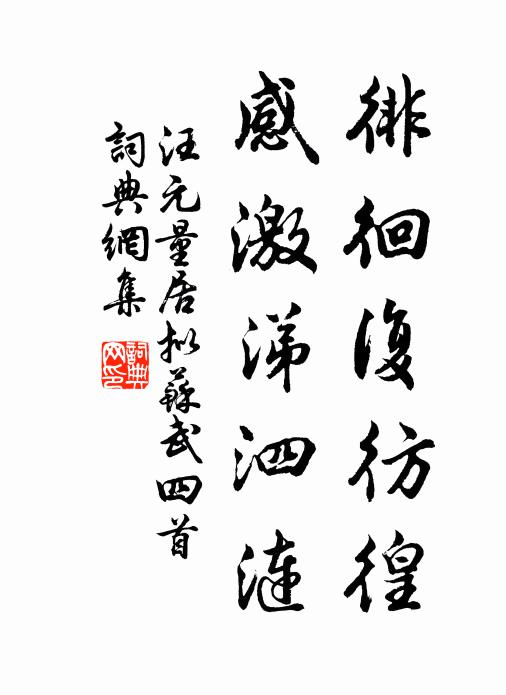 徘徊復彷徨
感激涕泗漣
汪元量居拟蘇武四首
詞典網集
詞典網印